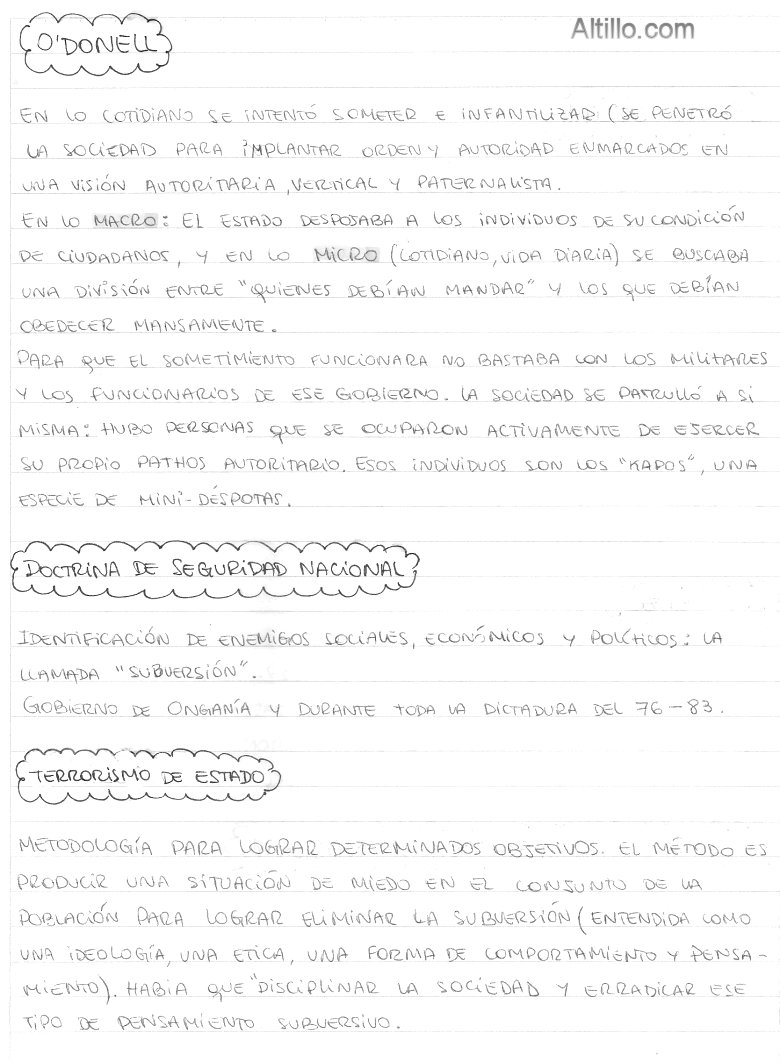 Altillo.com
O'DONELL
EN LO COTIDIANO SE INTENTÓ SOMETER E INFANTILIZAD (SE PENETRÓ
LA SOCIEDAD PARA IMPLANTAR ORDEN Y AUTORIDAD ENMARCADOS EN
UNA VISIÓN AUTORITARIA, VERTICAL Y PATERNALISTA.
EN LO MACRO: EL ESTADO DESPOJABA A LOS INDIVIDUOS DE SU CONDICIÓN
DE CIUDADANOS, Y EN LO MICRO (COTIDIANO, VIDA DIARIA) SE BUSCABA
UNA DIVISIÓN ENTRE "QUIENES DEBÍAN MANDAR" Y LOS QUE DEBÍAN
OBEDECER MANSAMENTE.
PARA QUE EL SOMETIMIENTO FUNCIONARA NO BASTABA CON LOS MILITARES
Y LOS FUNCIONARIOS DE ESE GOBIERNO. LA SOCIEDAD SE PATRULLÓ A SÍ
MISMA: HUBO PERSONAS QUE SE OCUPARON ACTIVAMENTE DE EJERCER
SU PROPIO PATHOS AUTORITARIO. ESOS INDIVIDUOS SON LOS "KAPOS", UNA
ESPECIE DE MINI-DÉSPOTAS.
DOCTRINA DE SEGURIDAD NACIONAL
IDENTIFICACIÓN DE ENEMIGOS SOCIALES, ECONÓMICOS Y POLÍTICOS: LA
LLAMADA "SUBVERSIÓN".
GOBIERNO DE ONGANÍA Y DURANTE TODA LA DICTADURA DEL 76-83.
TERRORISMO DE ESTADO
METODOLOGÍA PARA LOGRAR DETERMINADOS OBJETIVOS. EL MÉTODO ES
PRODUCIR UNA SITUACIÓN DE MIEDO EN EL CONJUNTO DE LA
POBLACIÓN PARA LOGRAR ELIMINAR LA SUBVERSIÓN (ENTENDIDA COMO
UNA IDEOLOGÍA, UNA ETICA, UNA FORMA DE COMPORTAMIENTO Y PENSA-
MIENTO). HABÍA QUE "DISCIPLINAR LA SOCIEDAD Y ERRADICAR ESE
TIPO DE PENSAMIENTO SUBVERSIVO.